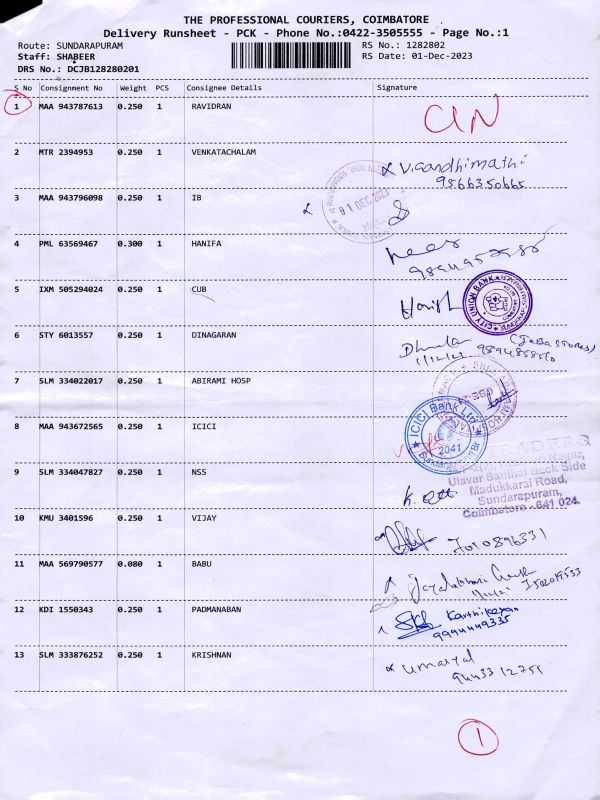 THE PROFESSIONAL COURIERS, COIMBATORE
Delivery Runsheet - PCK - Phone No.:0422-3505555 - Page No.:1
Route: SUNDARAPURAM RS No.: 1282802
Staff: SHABEER RS Date: 01-Dec-2023
DRS No.: DCJB128280201
S No Consignment No Weight PCS Consignee Details Signature
1 MAA 943787613 0.250 1 RAVIDRAN
2 MTR 2394953 0.250 1 VENKATACHALAM V.Gandhimathi
9566350665
3 MAA 943796098 0.250 1 IB 01 DEC 2023
4 PML 63569467 0.300 1 HANIFA
5 IXM 505294024 0.250 1 CUB Harish CITY UNION BANK
6 STY 6013557 0.250 1 DINAGARAN
7 SLM 334022017 0.250 1 ABIRAMI HOSP
8 MAA 943672565 0.250 1 ICICI ICICI Bank Ltd
2041
9 SLM 334047827 0.250 1 NSS
Nagar,
Ulavar Santhai Back Side
Madukkarai Road,
Sundarapuram,
Coimbatore - 641 024
10 KMU 3401596 0.250 1 VIJAY 7010896331
11 MAA 569790577 0.080 1 BABU
12 KDI 1550343 0.250 1 PADMANABAN Karthikeyan
9994449335
13 SLM 333876252 0.250 1 KRISHNAN umaiyal
9443312751
1